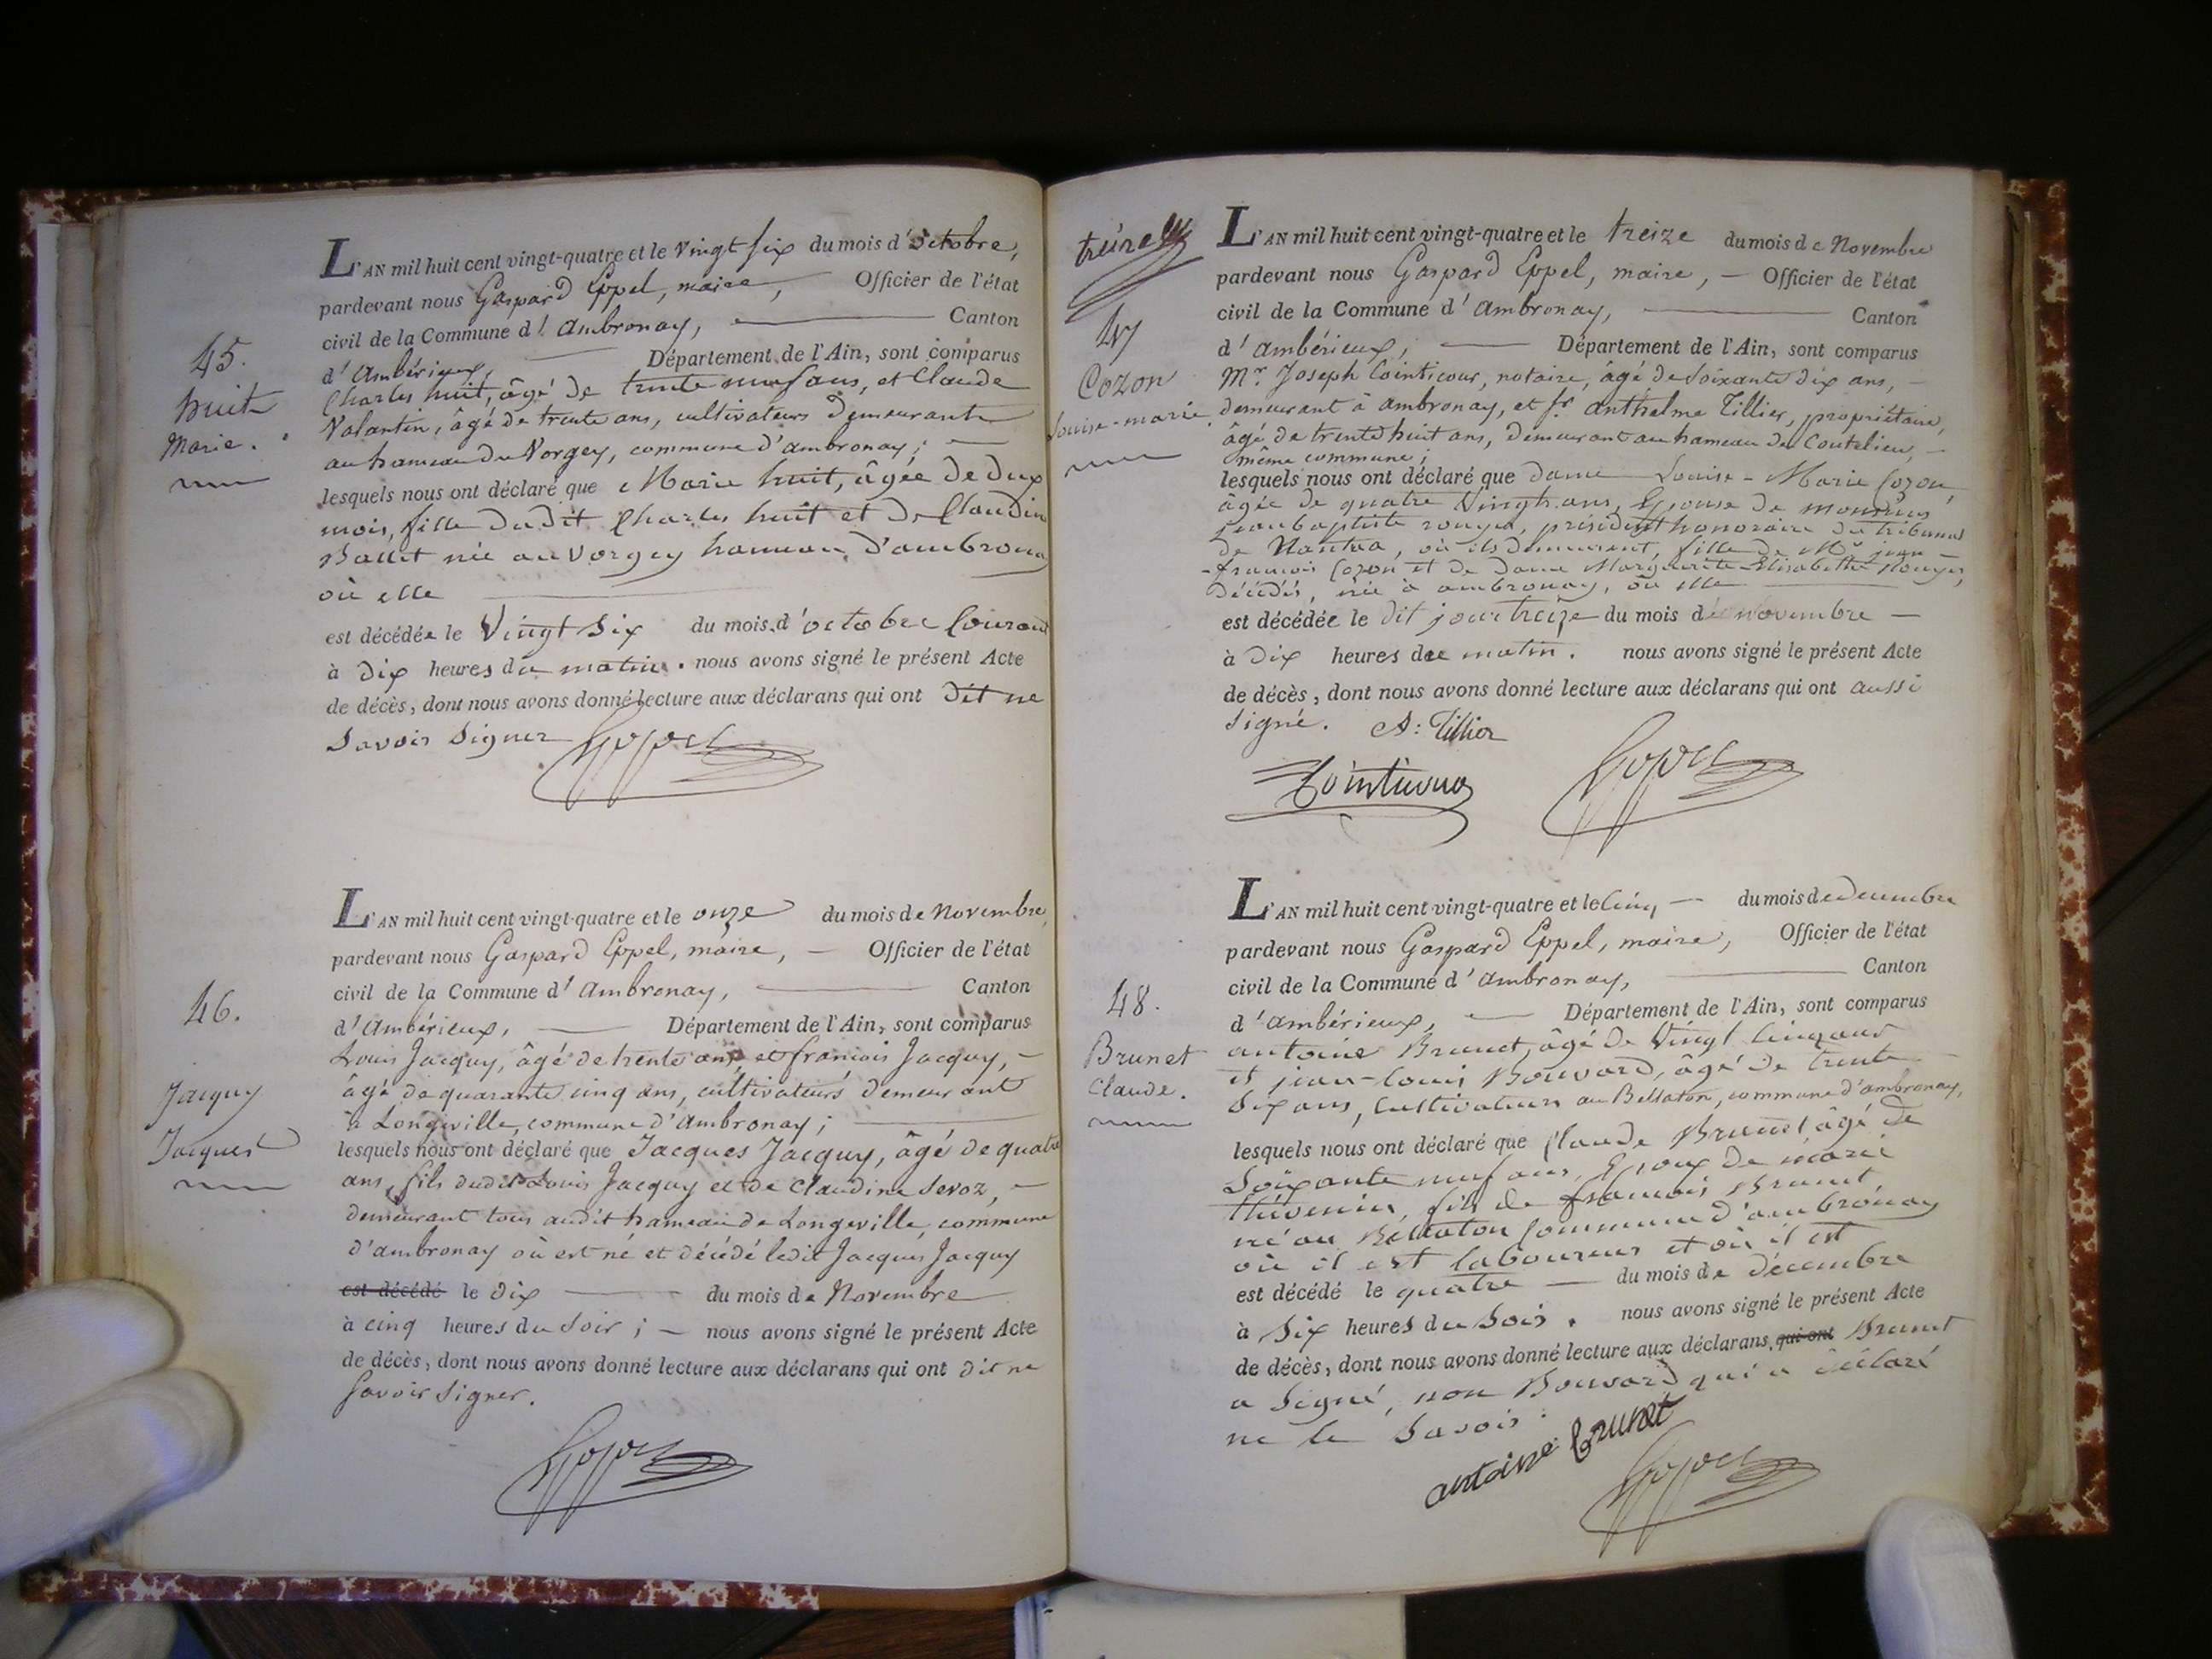 45.
huit
Marie.
L'AN mil huit cent vingt-quatre et le Vingt six du mois d'octobre,
pardevant nous Gaspard Eppel, maire, Officier de l'état
civil de la Commune d'Ambronay, Canton
d'Ambérieux, Département de l'Ain, sont comparus
Charles huit, âgé de trente neuf ans, et Claude
Valantin, âgé de trente ans, cultivateurs demeurants
au hameau du Vorgey, commune d'ambronay;
lesquels nous ont déclaré que Marie huit, âgée de deux
mois, fille dudit Charles huit et de Claudin
Ballet née au Vorgey hameau d'ambronay
où elle
est décédée le Vingt Six du mois d'octobre Courant
à dix heures du matin. nous avons signé le présent Acte
de décès, dont nous avons donné lecture aux déclarans qui ont dit ne
Savoir Signer
Eppel
46.
Jacquy
Jacques
L'AN mil huit cent vingt-quatre et le onze du mois de Novembre,
pardevant nous Gaspard Eppel, maire, Officier de l'état
civil de la Commune d'Ambronay, Canton
d'Ambérieux, Département de l'Ain, sont comparus
Louis Jacquy, âgé de trente ans, et francois Jacquy,
âgé de quarante cinq ans, cultivateurs demeurant
à Longeville, commune d'Ambronay;
lesquels nous ont déclaré que Jacques Jacquy, âgé de quatre
ans, fils dudit Louis Jacquy et de Claudine Sevoz,
demeurant tous audit hameau de Longeville, commune
d'ambronay où est né et décédé ledit Jacques Jacquy
est décédé le dix du mois de Novembre
à cinq heures du Soir; nous avons signé le présent Acte
de décès, dont nous avons donné lecture aux déclarans qui ont dit ne
Savoir Signer.
Eppel
47
Cozon
Louise-marie.
L'AN mil huit cent vingt-quatre et le treize du mois de Novembre
pardevant nous Gaspard Eppel, maire, Officier de l'état
civil de la Commune d'Ambronay, Canton
d'Ambérieux, Département de l'Ain, sont comparus
Mr. Joseph Cointicour, notaire, âgé de Soixante dix ans,
demeurant à ambronay, et sr. anthelme Tillier, propriétaire,
âgé de trente huit ans, demeurant au hameau du Coutelieu,
même commune;
lesquels nous ont déclaré que dame Louise-Marie Cozon,
âgée de quatre Vingts ans, Epouse de monsieur
jean baptiste rouyer, président honoraire du tribunal
de Nantua, où ils demeurent, fille de Mr jean
-francois Cozon et de dame Marguerite Elisabeth Rouyer,
décédés, née à ambronay, où elle
est décédée le dit jour treize du mois de novembre
à Dix heures du matin. nous avons signé le présent Acte
de décès, dont nous avons donné lecture aux déclarans qui ont aussi
Signé. A: Tillier
Eppel
48.
Brunet
Claude.
L'AN mil huit cent vingt-quatre et le Cinq du mois de decembre
pardevant nous Gaspard Eppel, maire, Officier de l'état
civil de la Commune d'Ambronay, Canton
d'Ambérieux, Département de l'Ain, sont comparus
antoine Brunet, âgé de Vingt Cinq ans
et jean-louis Bouvard, âgé de trente
Six ans, Cultivateurs au Bellaton, commune d'ambronay,
lesquels nous ont déclaré que Claude Brunet âgé de
Soixante neuf ans, Epoux de marie
thévenin, fils de francois Brunet
né au Bellaton Commune d'ambronay
où il est laboureur et où il est
est décédé le quatre du mois de décembre
à Six heures du Soir. nous avons signé le présent Acte
de décès, dont nous avons donné lecture aux déclarans qui ont Brunet
a Signé, non Bouvard qui a déclaré
ne le Savoir.
antoine brunet
Eppel